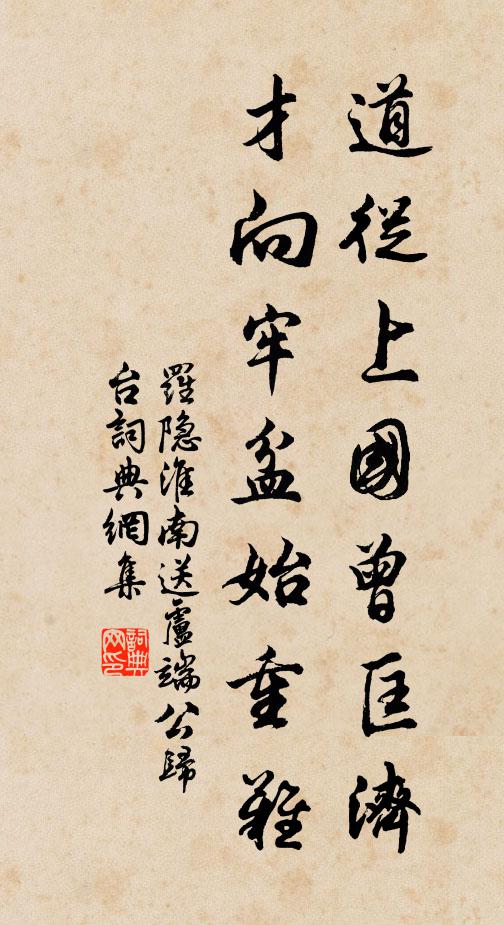 道從上國曾匡濟
才向牢盆始重難
羅隐淮南送盧端公歸
台詞典網集
詞典
网印